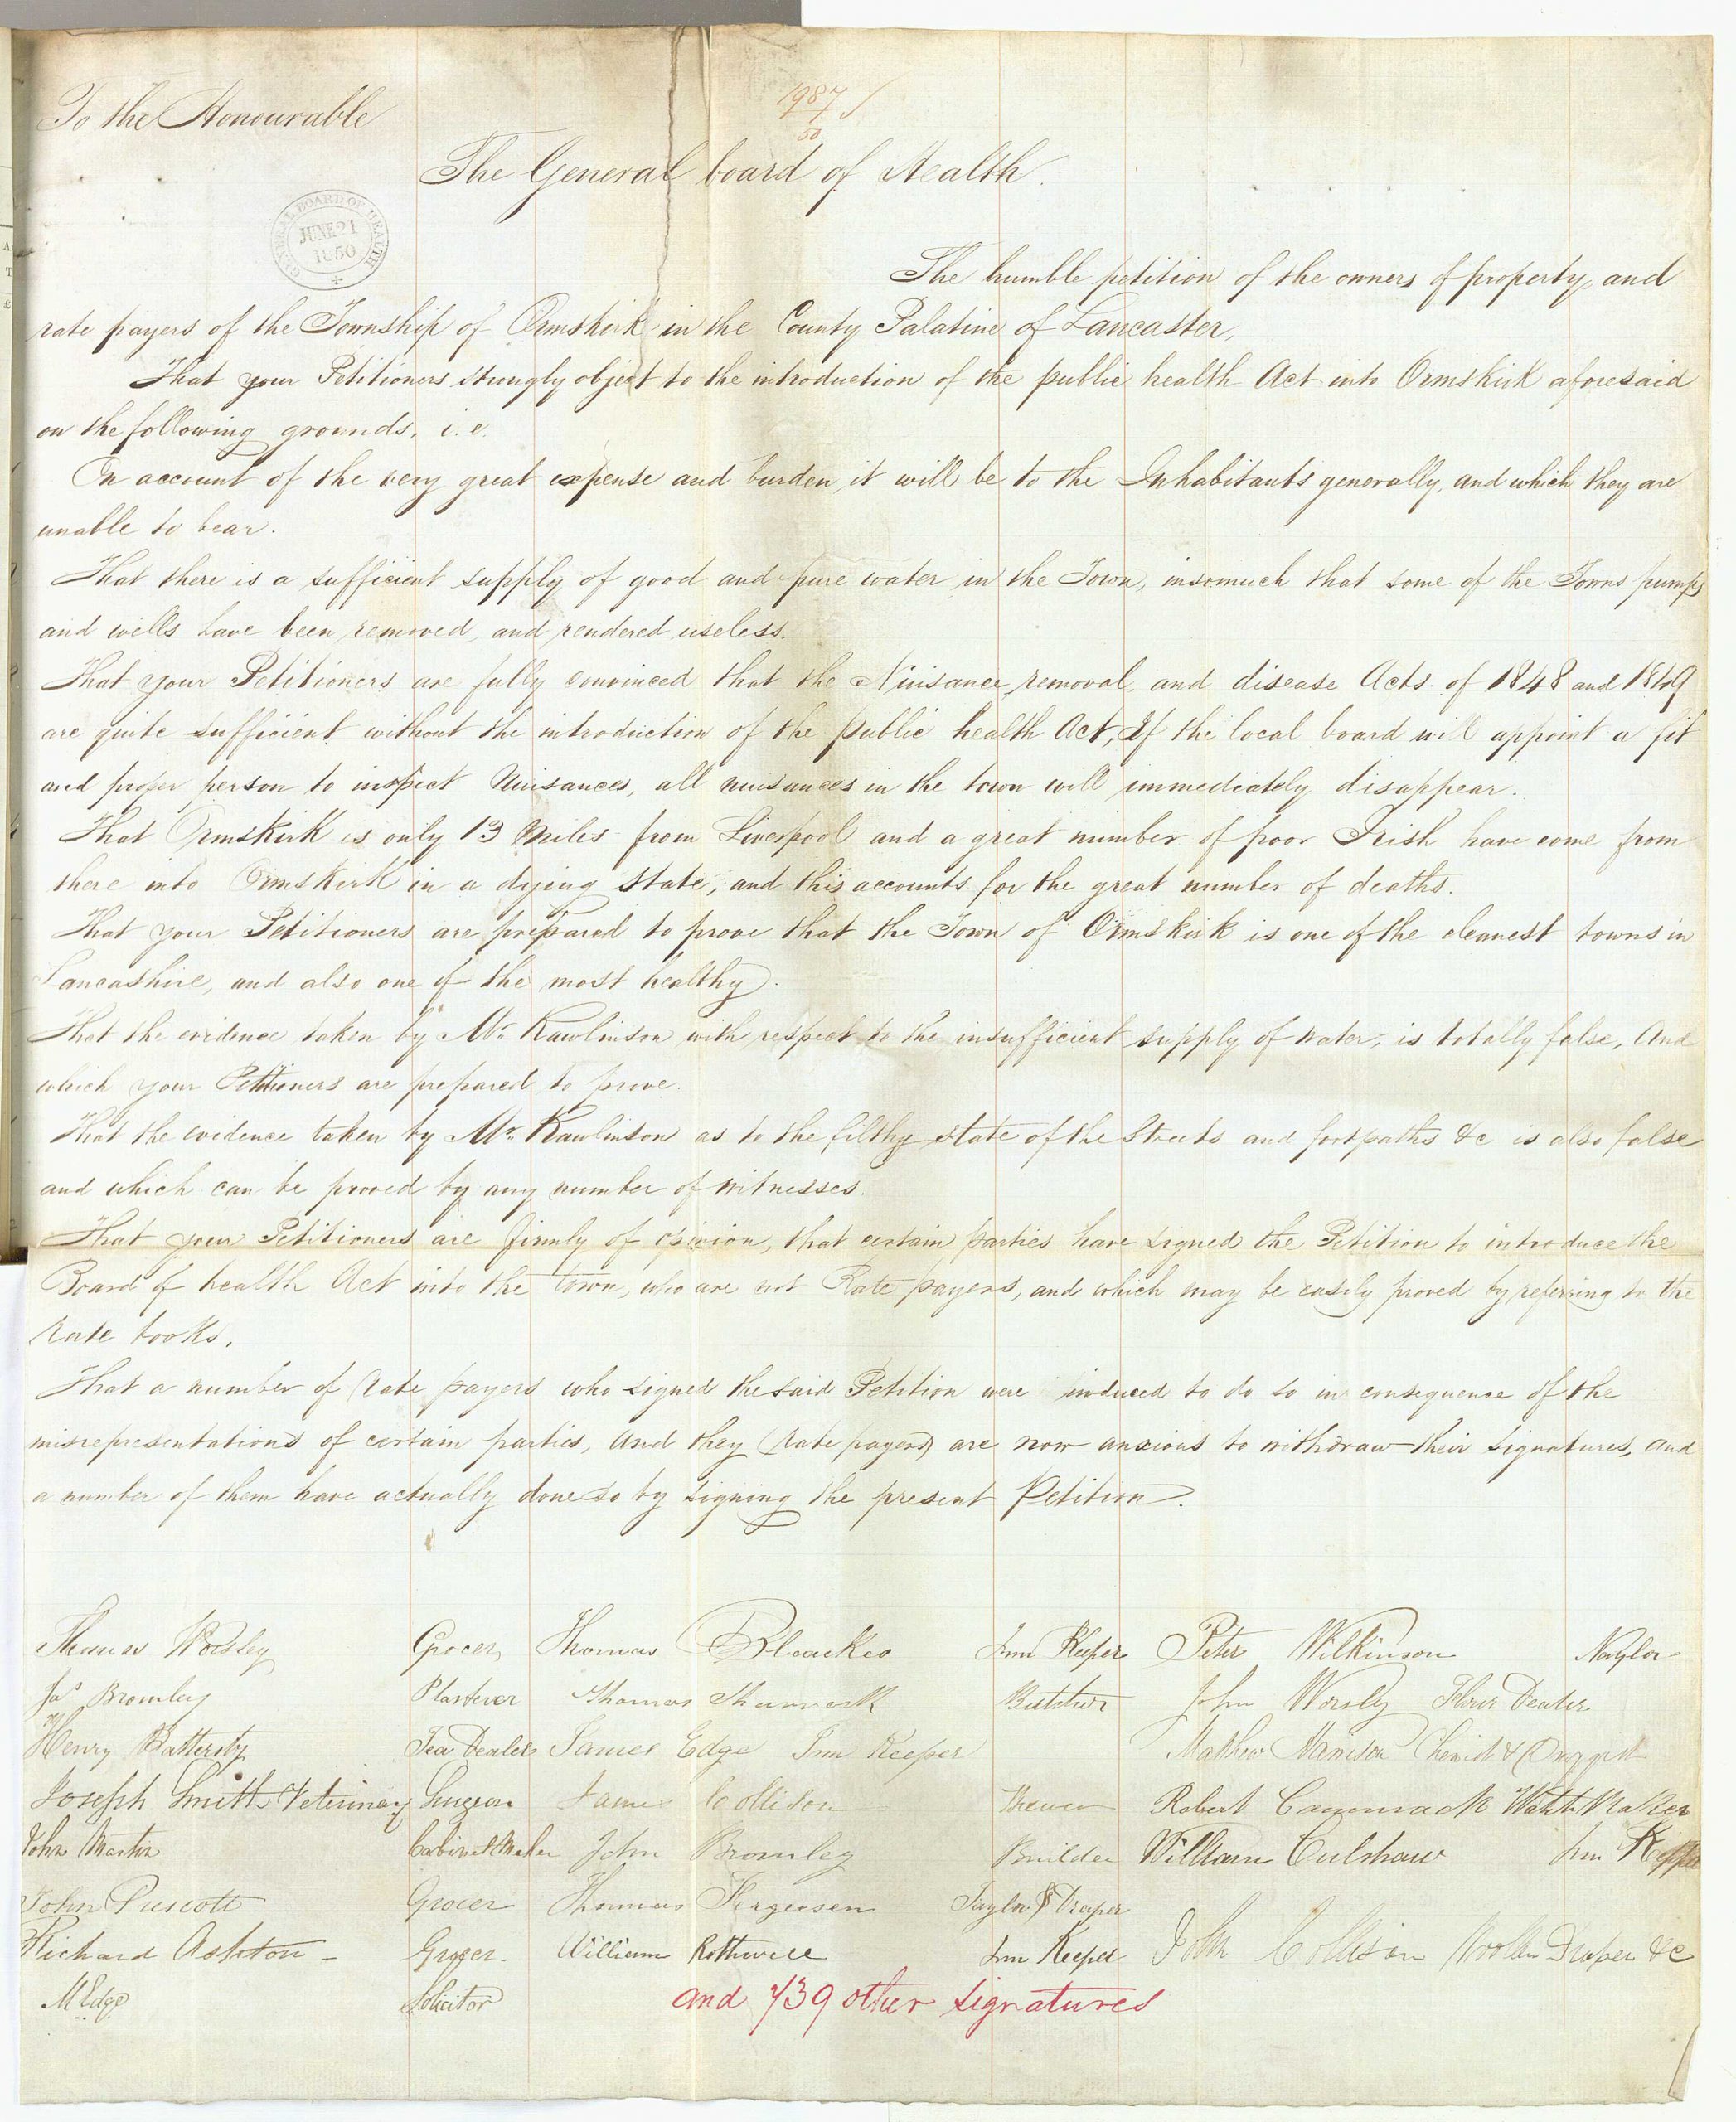 To the Honourable
1987
50
The General board of Health.
GENERAL BOARD OF HEALTH
JUNE 21
1850
The humble petition of the owners of property, and
rate payers of the Township of Ormskirk in the County Palatine of Lancaster,
That your Petitioners strongly object to the introduction of the public health Act into Ormskirk aforesaid
on the following grounds, i.e.
On account of the very great expense and burden, it will be to the Inhabitants generally, and which they are
unable to bear.
That there is a sufficient supply of good and pure water in the Town, insomuch that some of the Towns pumps
and wells have been removed, and rendered useless.
That your Petitioners are fully convinced that the Nuisance removal, and disease Acts. of 1848 and 1849
are quite sufficient without the introduction of the public health Act, If the local board will appoint a fit
and proper person to inspect Nuisances, all nuisances in the town will immediately disappear.
That Ormskirk is only 13 Miles from Liverpool and a great number of poor Irish have come from
there into Ormskirk in a dying state, and this accounts for the great number of deaths.
That your Petitioners are prepared to prove that the Town of Ormskirk is one of the cleanest towns in
Lancashire, and also one of the most healthy.
That the evidence taken by Mr. Rawlinson with respect to the insufficient supply of water, is totally false, And
which your Petitioners are prepared to prove.
That the evidence taken by Mr. Rawlinson as to the filthy state of the Streets and footpaths &c is also false
and which can be proved by any number of witnesses.
That your Petitioners are firmly of opinion, that certain parties have signed the Petition to introduce the
Board of health Act into the town, who are not Rate payers, and which may be easily proved by referring to the
rate books.
That a number of rate payers who signed the said Petition were induced to do so in consequence of the
misrepresentations of certain parties, And they (rate payers) are now anxious to withdraw their signatures, and
a number of them have actually done so by signing the present Petition.
Thomas Worsley Grocer Thomas Blackes Inn Keeper Peter Wilkinson Naylor
Jas Bromley Plasterer Thomas Butcher John Worsley Flour Dealer
Henry Battersby Tea Dealer James Edge Inn Keeper Mathew Harrison Chemist & Druggist
Joseph Smith Veterinary Surgeon James Collison Brewer Robert Cammack Watch Maker
John Martin Cabinet Maker John Bromley Builder William Culshaw Inn Keeper
John Prescott Grocer Thomas Fergusen Taylor & Draper
Richard Ashton Grocer William Rothwell Inn Keeper John Collison Woollen Draper &c
M Edge Solicitor and 439 other signatures